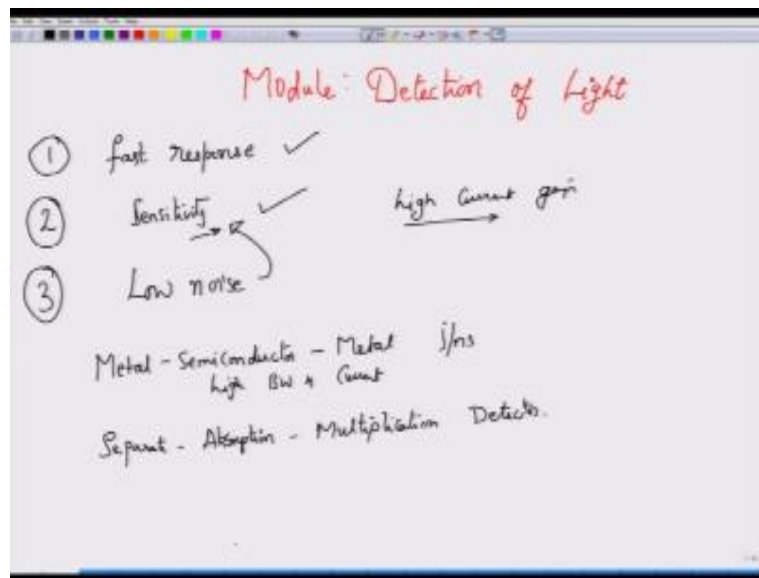 Module: Detection of Light
① fast response ✓
② Sensitivity ✓ high Current gain
③ Low noise
Metal - Semiconductor - Metal j/ns
high BW & Current
Separat - Absorption - Multiplication Detector.